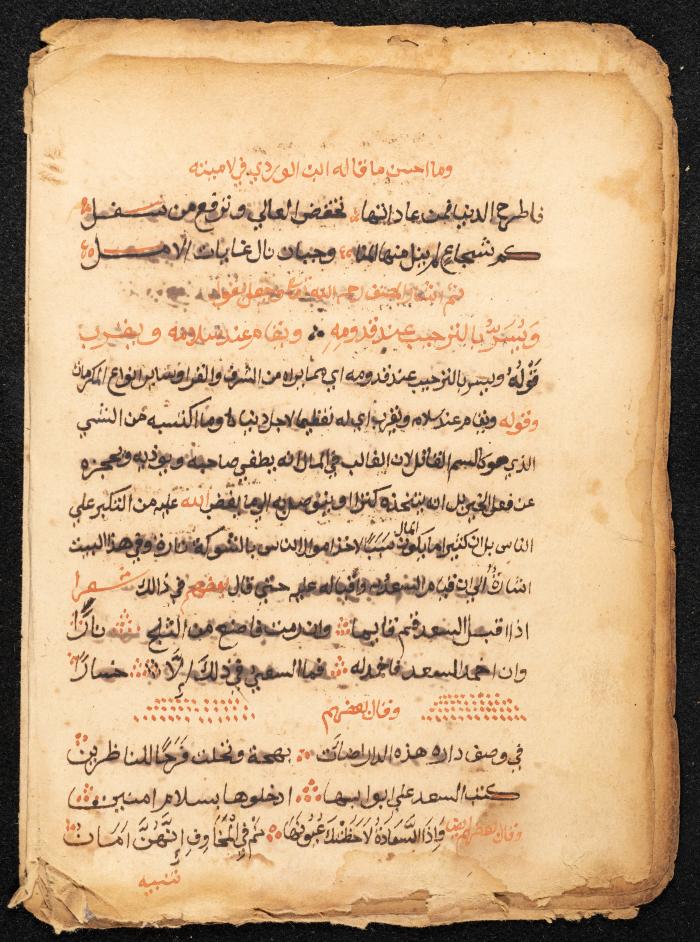 وما احسن ما قاله ابن الوردي في لاميته
فاطرح الدنيا فمن عاداتها تخفض العالي وترفع من سفل
كم شجاع لم ينل منها المنا وجبان نال غايات الامل
ثم
ويسر بالترحيب عند قدومه ويقام عند سلامه ويقرب
قوله ويسر بالترحيب عند قدومه اي مما يراه من الشرف
وقوله ويقام عند سلام ويقرب اي له تعظيما لاجل دنياه وما اكتسبه من الشي
الذي هو كالسم القاتل لان الغالب في المال انه يطغي صاحبه ويوذيه ويعجزه
عن فعل الخير بل ان يتخذه كنزا ويتوصل به الي ما يغضب الله عليه من التكبر علي
الناس بل ان كثيرا ما يكون المال سببا لاخذ اموال الناس بالشوكة تارة وفي هذا البيت
اشارة الي ان قيام السعد به واقباله عليه حتي قال بعضهم في ذالك شعرا
اذا اقبل السعد قم قايما وان رمت فاضع من الثلج نارا
وان احمد السعد فاخمد له فما السعي في ذلك الا خسارا
وقال بعضهم
في وصف داره هذه الدار اضات بهجة وتجلت فرحا للناظرين
كتب السعد علي ابوابها ادخلوها بسلام امنين
وقال بعضهم ايضا وَاِذَا السَّعَادَةُ لَاحَظَتْكَ عُيُونُهَا نَمْ فَالْمَخَاوِفُ اِنَّهُنَّ اَمَان
تنبيه